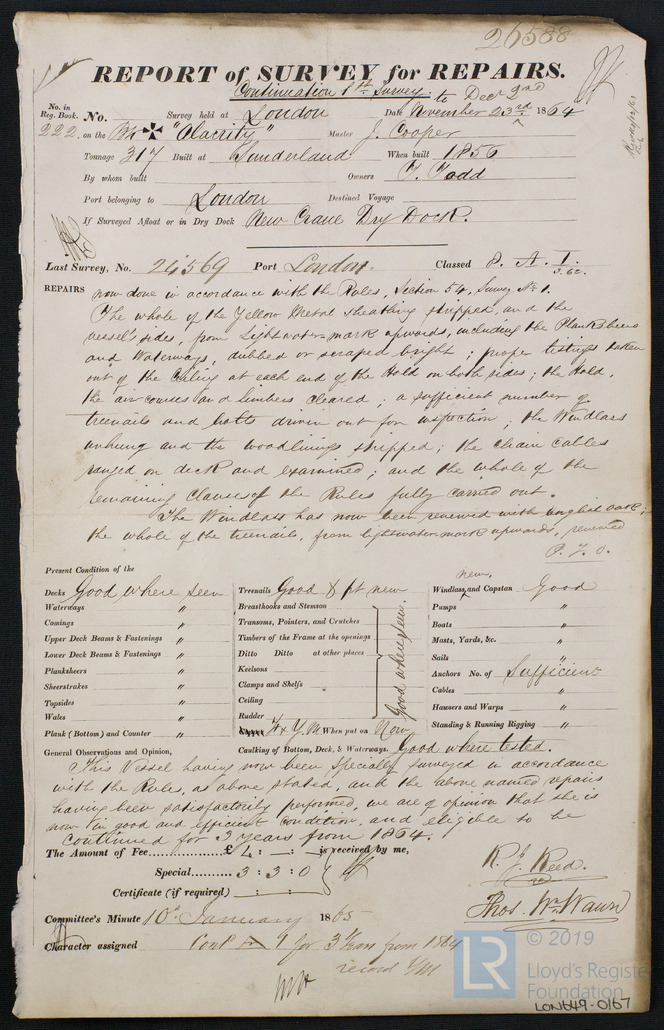 26588
REPORT of SURVEY for REPAIRS.
Continuation 1st Survey. to Decr 2nd
No. in Reg. Book. No. Survey held at London Date November 23rd 1864
222 on the Bk "Alacrity" Master J. Cooper
Tonnage 317 Built at Sunderland When built 1856
By whom built Owners T. Todd
Port belonging to London Destined Voyage
If Surveyed Afloat or in Dry Dock New Crane Dry Dock.
Last Survey, No. 24569 Port London. Classed 8. A. 1.
3.62.
REPAIRS now done in accordance with the Rules, Section 54, Survey No 1.
The whole of the Yellow Metal sheathing stripped, and the
vessel's sides, from Lightwater-mark upwards, including the Planksheers
and Waterways, dubbed or scraped bright; proper listings taken
out of the Ceiling at each end of the Hold on both sides; the Hold,
the air courses and limbers cleared; a sufficient number of
treenails and bolts driven out for inspection; the Windlass
unhung and the woodlinings stripped; the chain cables
ranged on deck and examined; and the whole of the
remaining Clauses of the Rules fully carried out.
The Windlass has now been renewed with English Oak;
the whole of the treenails, from lightwater mark upwards, renewed
P. T. O.
Present Condition of the
Decks Good where seen
Waterways "
Comings "
Upper Deck Beams & Fastenings "
Lower Deck Beams & Fastenings "
Planksheers "
Sheerstrakes "
Topsides "
Wales "
Plank (Bottom) and Counter "
Treenails Good & pt new
Breasthooks and Stemson
Transoms, Pointers, and Crutches
Timbers of the Frame at the openings
Ditto Ditto at other places
Keelsons
Clamps and Shelfs
Ceiling
Rudder
Good where seen.
Copper F & Y.M When put on Now
Caulking of Bottom, Deck, & Waterways. Good where tested.
new,
Windlass and Capstan Good
Pumps "
Boats "
Masts, Yards, &c. "
Sails "
Anchors No. of Sufficient
Cables "
Hawsers and Warps "
Standing & Running Rigging "
General Observations and Opinion,
This Vessel having now been specially surveyed in accordance
with the Rules, as above stated, and the above named repairs
having been satisfactorily performed, we are of opinion that she is
now in good and efficient condition, and eligible to be
continued for 3 years from 1864.
The Amount of Fee............£ 2:–:– is received by me,
Special......... 3:3:0
Certificate (if required) :
R. J. Reed.
Thos. Wm Wawn
Committee's Minute 10th January 1865
Character assigned Cont A 1 for 3 Years from 1864
record Y/M
© 2019
LR
Lloyd's Register
Foundation
LON649-0167